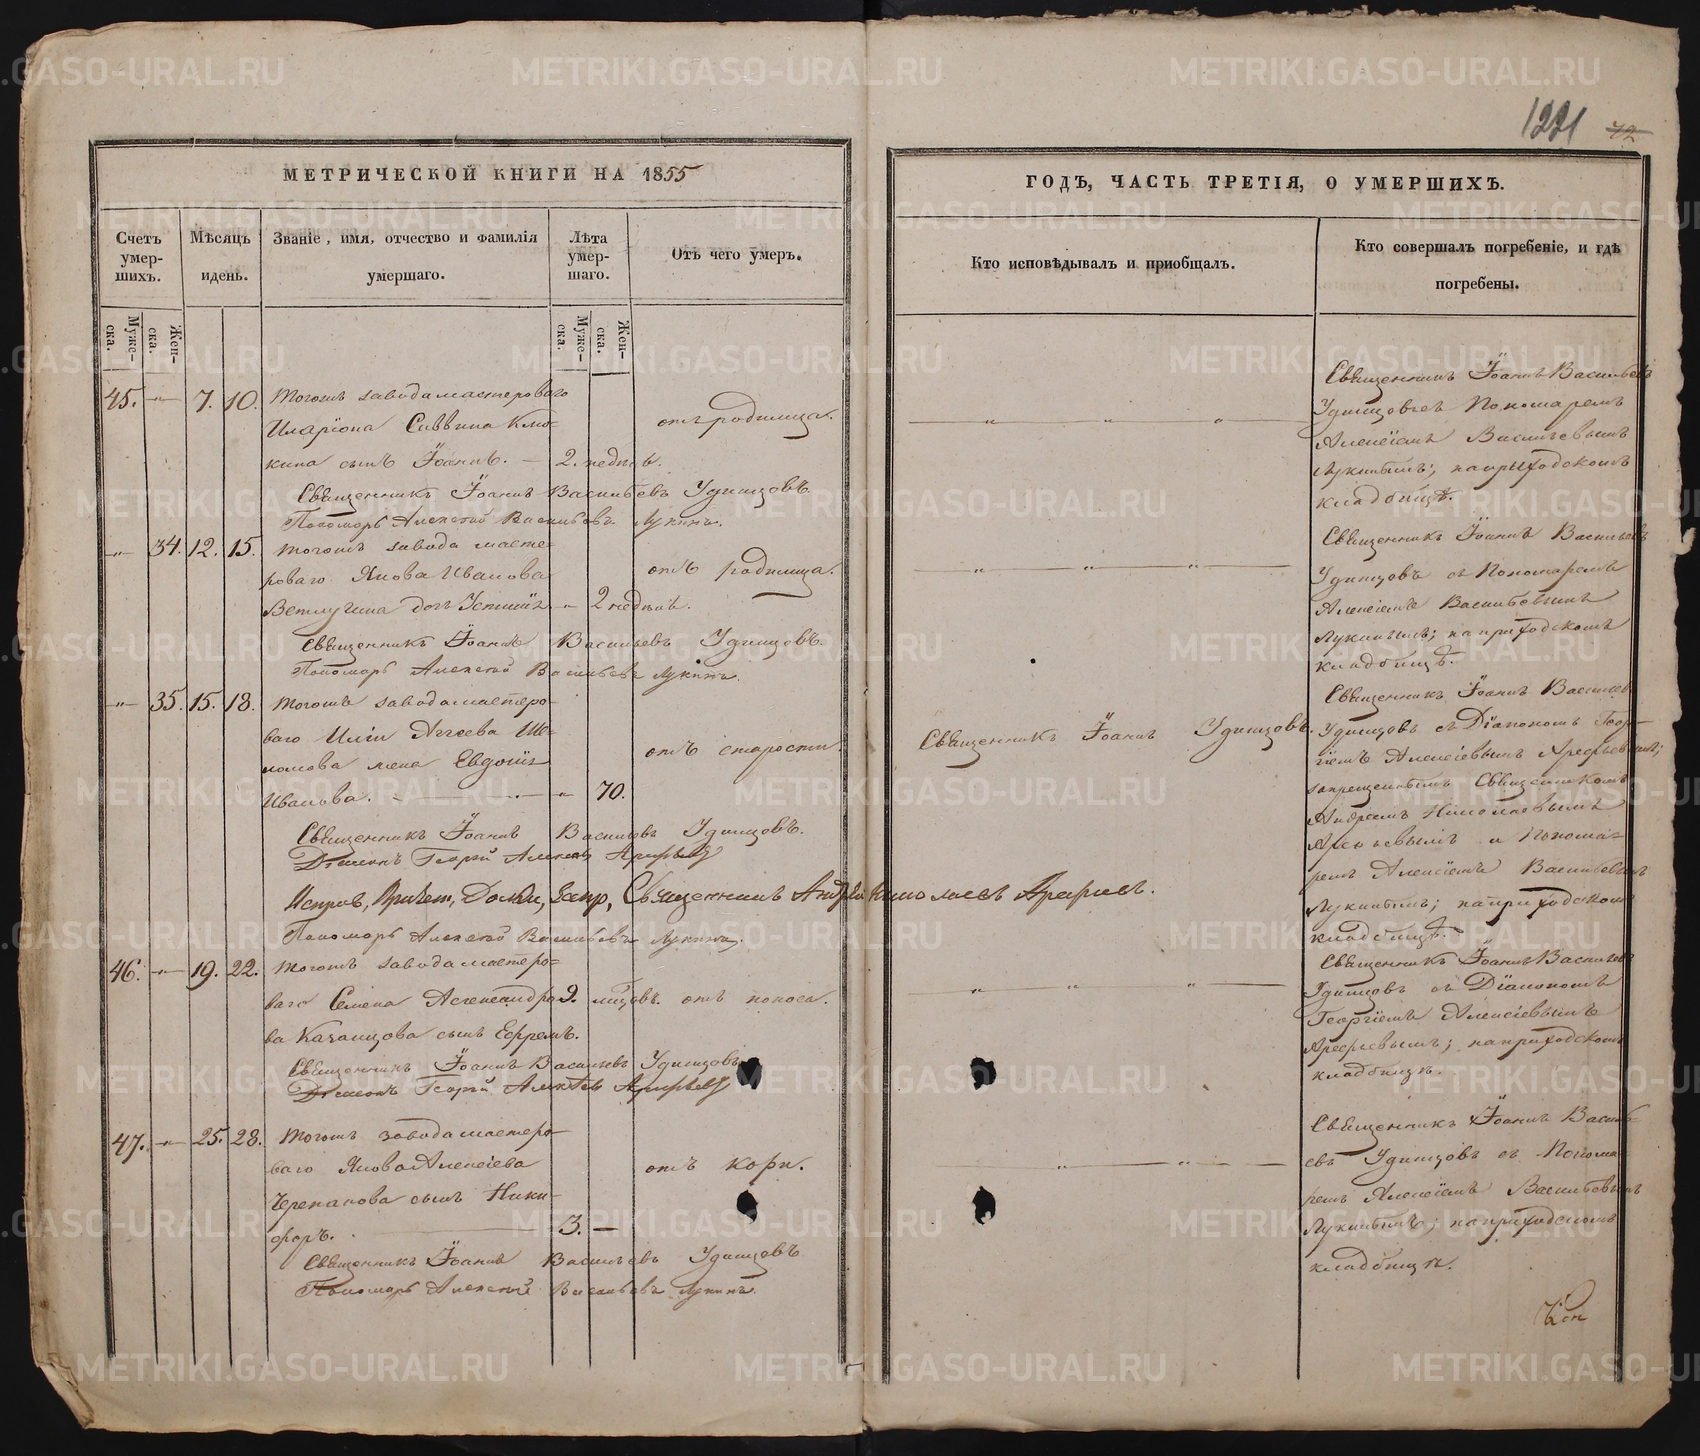 1221 72
МЕТРИЧЕСКОЙ КНИГИ НА 1855
Счетъ умершихъ.
Мѣсяцъ и день.
Званіе, имя, отчество и фамилія умершаго.
Лѣта умершаго.
Отъ чего умеръ.
Мужеска.
Женска.
Мужеска.
Женска.
45. — 7. 10. Тогожъ завода мастероваго
Иларіона Саввина Клю- отъ родимца.
кина сынъ Іоаннъ. — 2. недѣль.
Священникъ Іоаннъ Васильевъ Удинцовъ.
Пономарь Алексей Васильевъ Лукинъ.
— 34. 12. 15. Тогожъ завода масте-
роваго Якова Иванова отъ родимца.
Ветлугина дочь Устинія — 2 недѣль.
Священникъ Іоаннъ Васильевъ Удинцовъ.
Пономарь Алексей Васильевъ Лукинъ.
— 35. 15. 18. Тогожъ завода мастеро-
ваго Иліи Аггеева
жена Евдокія отъ старости.
Иванова. — 70.
Священникъ Іоаннъ Васильевъ Удинцовъ.
Діаконъ Георгій Алексѣевъ Арефьевъ
Священникъ Андрей Николаевъ Арефьевъ.
Пономарь Алексей Васильевъ Лукинъ.
46. — 19. 22. Тогожъ завода мастеро-
ваго Семена Александро- 9. мѣсцовъ. отъ поноса.
ва Казанцова сынъ Ефремъ.
Священникъ Іоаннъ Васильевъ Удинцовъ
Діаконъ Георгій Алексѣевъ Арефьевъ
47. — 25. 28. Тогожъ завода мастеро-
ваго Якова Алексіева отъ кори.
Черепанова сынъ Ники-
форъ. 3. —
Священникъ Іоаннъ Васильевъ Удинцовъ
Пономарь Алексей Васильевъ Лукинъ.
ГОДЪ, ЧАСТЬ ТРЕТІЯ, О УМЕРШИХЪ.
Кто исповѣдывалъ и пріобщалъ.
Кто совершалъ погребеніе, и гдѣ погребены.
Священникъ Іоаннъ Васильевъ
Удинцовъ съ Пономаремъ
Алексіемъ Васильевымъ
Лукинымъ; на приходскомъ
кладбищѣ.
Священникъ Іоаннъ Васильевъ
Удинцовъ съ Пономаремъ
Алексіемъ Васильевымъ
Лукинымъ; на приходскомъ
кладбищѣ.
Священникъ Іоаннъ Удинцовъ.
Священникъ Іоаннъ Васильев
Удинцовъ съ Діакономъ Геор-
гіемъ Алексіевымъ Арефьевымъ;
запрещеннымъ Священникомъ
Андреемъ Николаевымъ
Арефьевымъ и Понома-
ремъ Алексіемъ Васильевымъ
Лукинымъ; на приходскомъ
кладбищѣ.
Священникъ Іоаннъ Васильевъ
Удинцовъ съ Діакономъ
Георгіемъ Алексіевымъ
Арефьевымъ; на приходскомъ
кладбищѣ.
Священникъ Іоаннъ Василь-
евъ Удинцовъ съ Понома-
ремъ Алексіемъ Васильевымъ
Лукинымъ; на приходскомъ
кладбищѣ.
METRIKI.GASO-URAL.RU